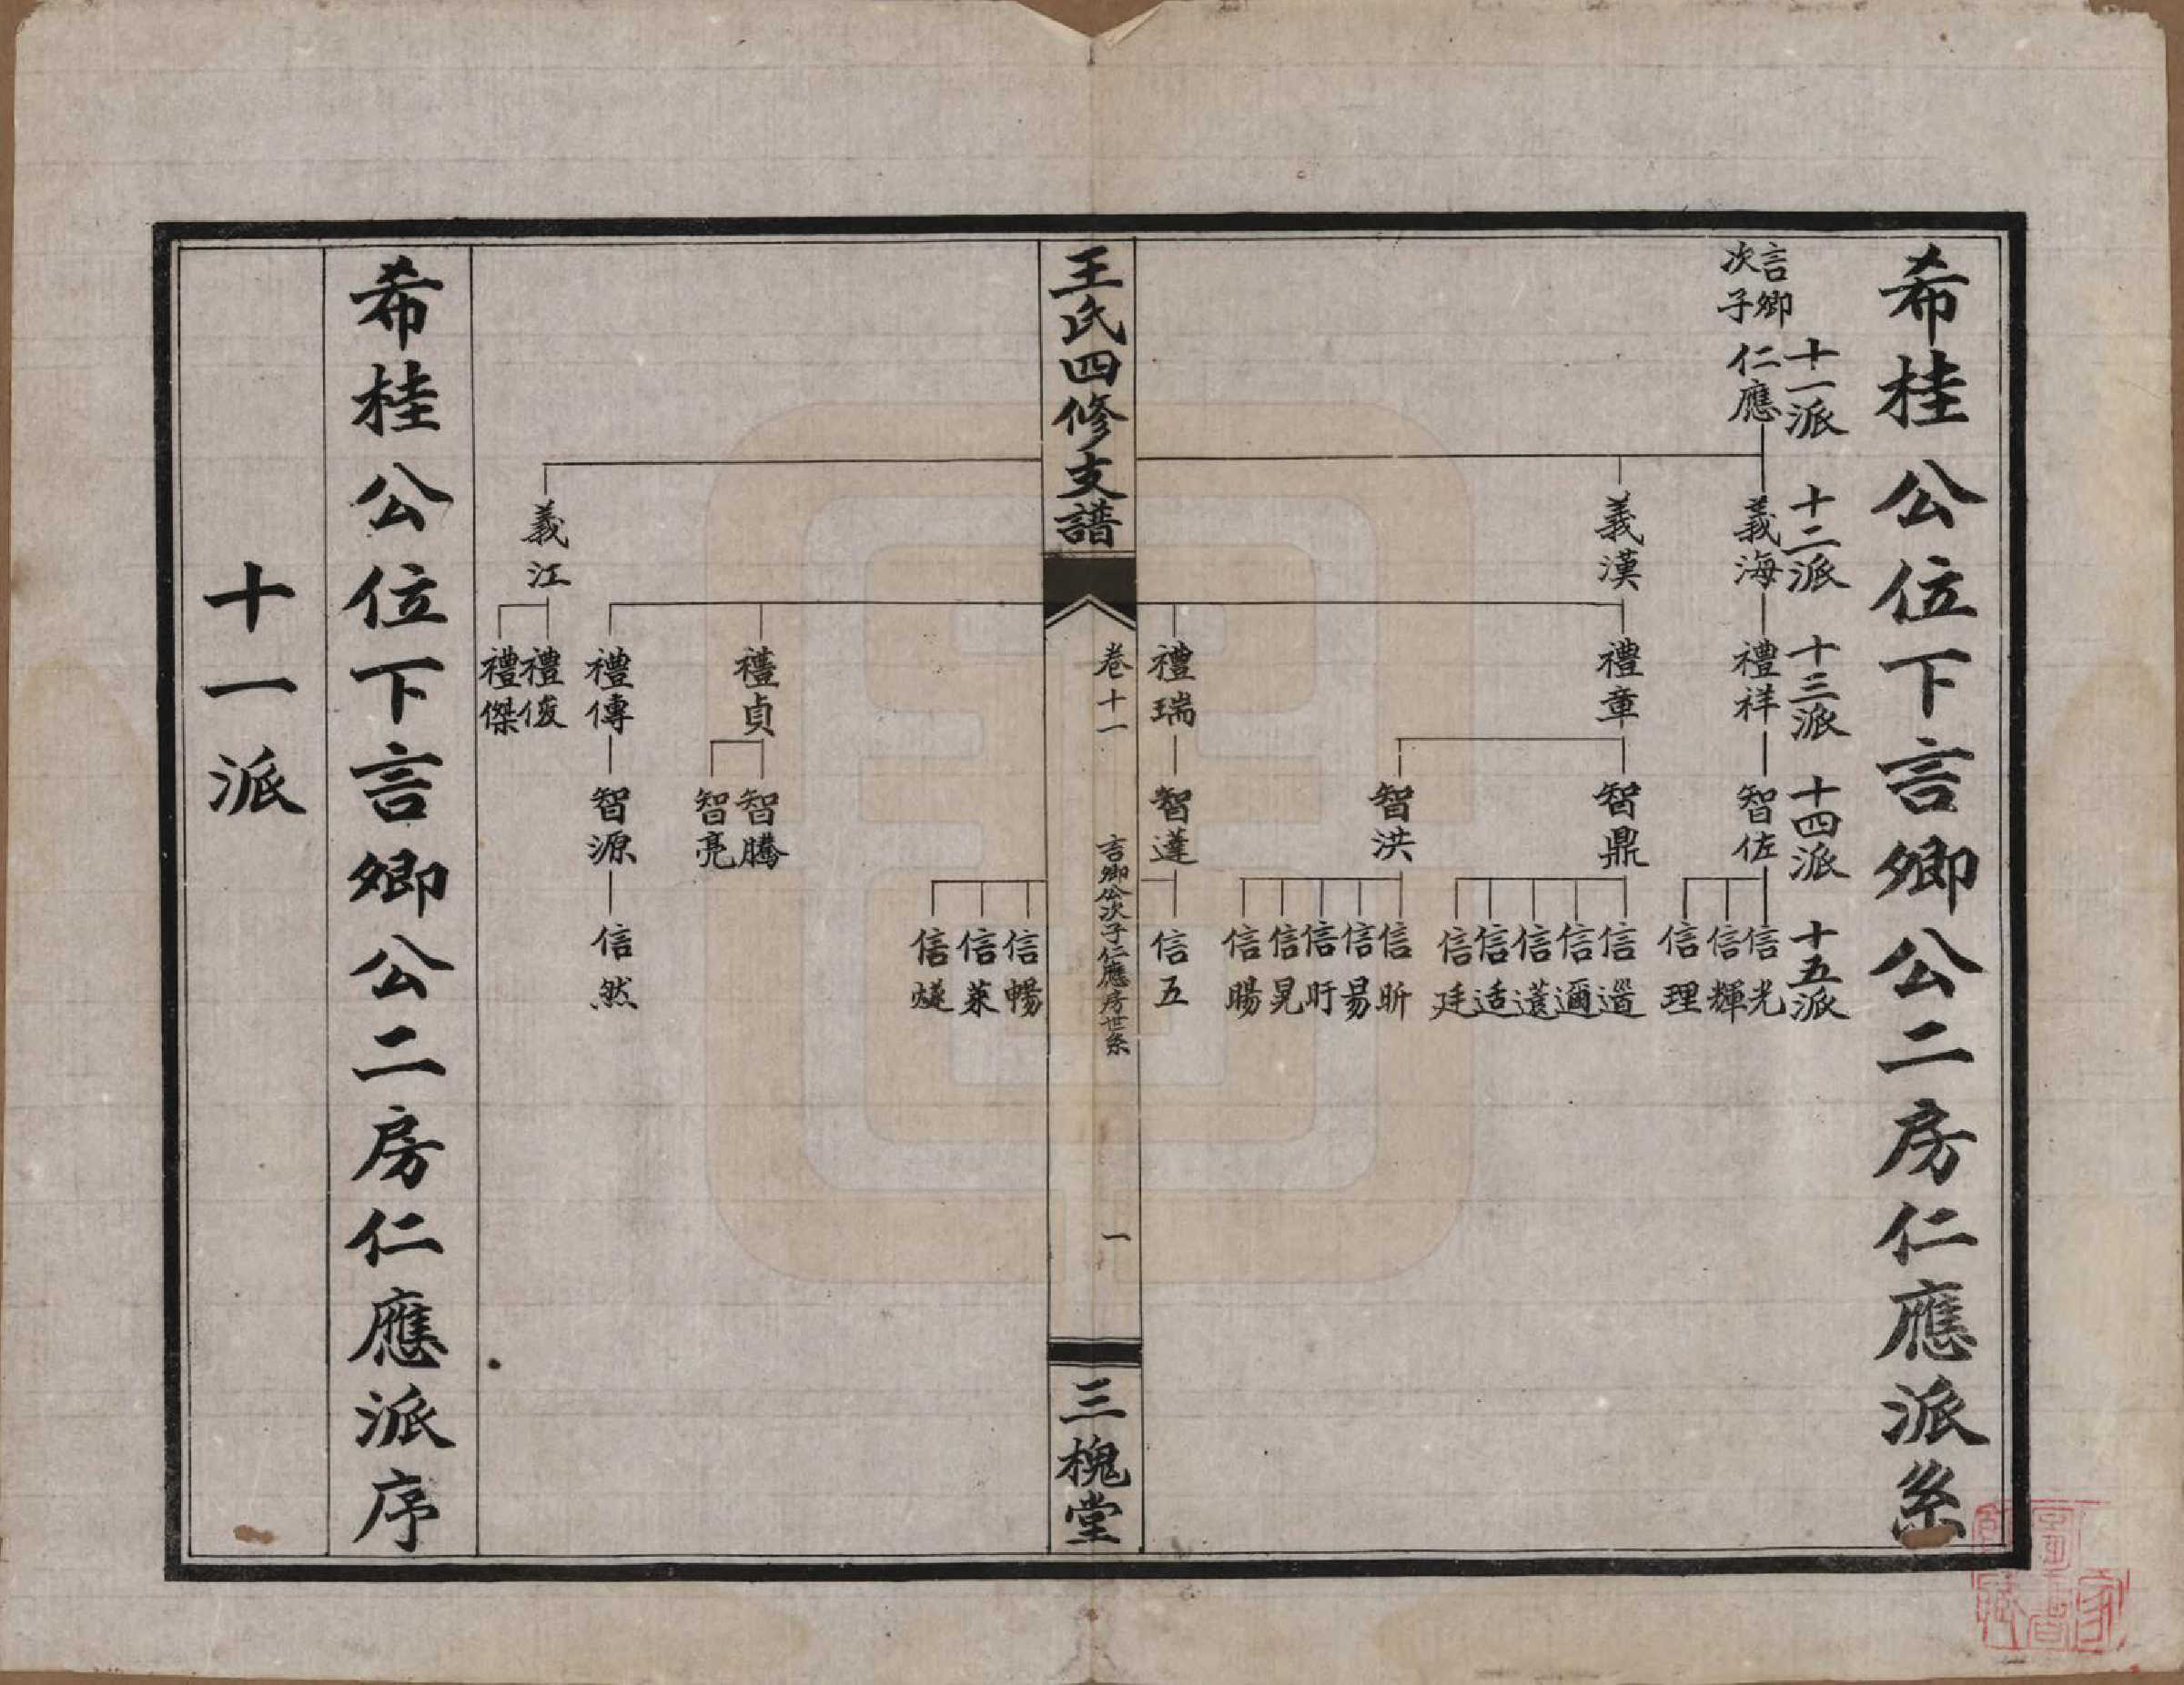 希桂公位下言卿公二房仁應派系
十一派
十二派
十三派
十四派
十五派
言卿
次子
仁應
義海
禮祥
智佐
信光
信輝
信理
義漢
禮章
智鼎
信邇
信适
信廷
智洪
信昕
信易
信盱
信晃
信暘
禮瑞
智蓬
信五
王氏四修支譜
卷十一
言卿公次子仁應房世系
一
三槐堂
信暢
信萊
信燧
禮貞
智騰
智亮
禮傳
智源
信然
義江
禮俊
禮傑
希桂公位下言卿公二房仁應派序
十一派